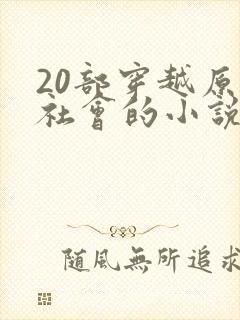 20部穿越原
社會的小說
隨風無所追求